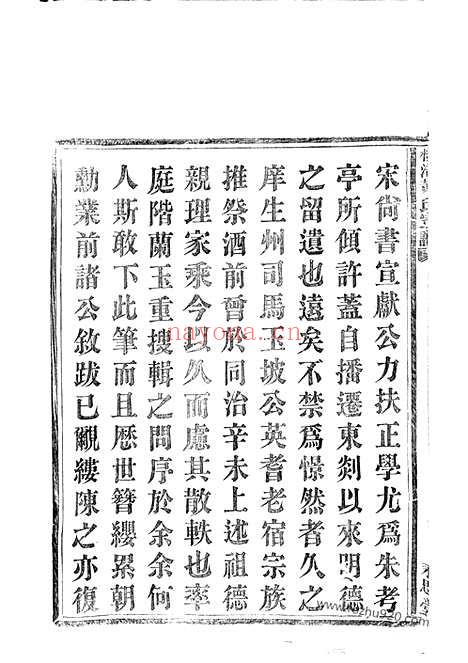 宋尙書宣獻公力扶正學尤爲朱考
亭所傾許蓋自播遷東剡以來明德
之留遺也遠矣不禁爲憬然者久之
庠生州司馬玉坡公英耆老宿宗族
推祭酒前曾於同治辛未上述祖德
親理家乘今以久而慮其散軼也率
庭階蘭玉重搜輯之問序於余余何
人斯敢下此筆而且歷世簪纓累朝
勳業前諸公敘跋已覼縷陳之亦復
nayona.cn